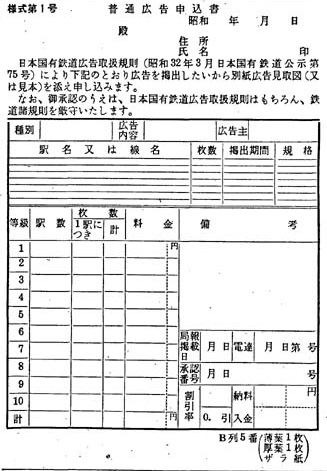 様式第1号　普通広告申込書
昭和　年　月　日
殿
住所
氏名　印
日本国有鉄道広告取扱規則（昭和32年3月日本国有鉄道公示第
75号）により下記のとおり広告を掲出したいから別紙広告見取図（又
は見本）を添え申し込みます。
なお、御承認のうえは、日本国有鉄道広告取扱規則はもちろん、貴
鉄道諸規則を厳守いたします。
種別　広告内容　広告主
駅名又は線名　枚数　掲出期間　規格
等級　駅数　枚数　料金　備考
1駅につき　計
円
1
2
3
4
5
6
7
8
9
10
計
局報掲載日　月　日　電達　月　日第　号
承認番号　月　日　号
割引率　0.　引　納料入金　円
B列5番（薄葉1枚
厚葉1枚
ザラ紙）